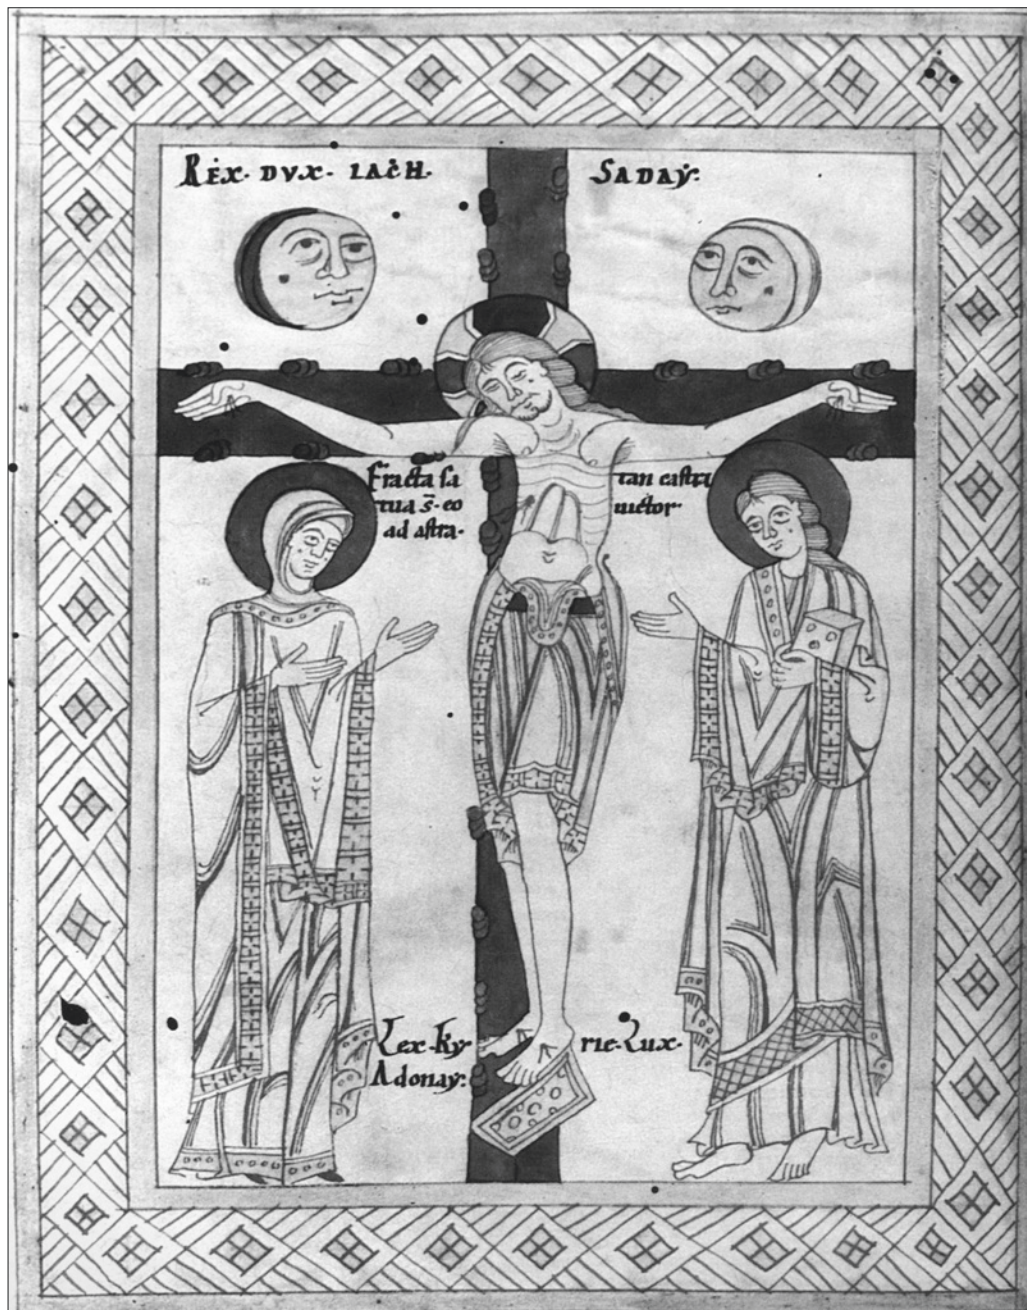 REX · DVX · LACH · SADAY:
Fracta sa tan castra
tua s̄ · eo uictor ·
ad astra ·
Lex · Ky rie · Lux ·
Adonay: